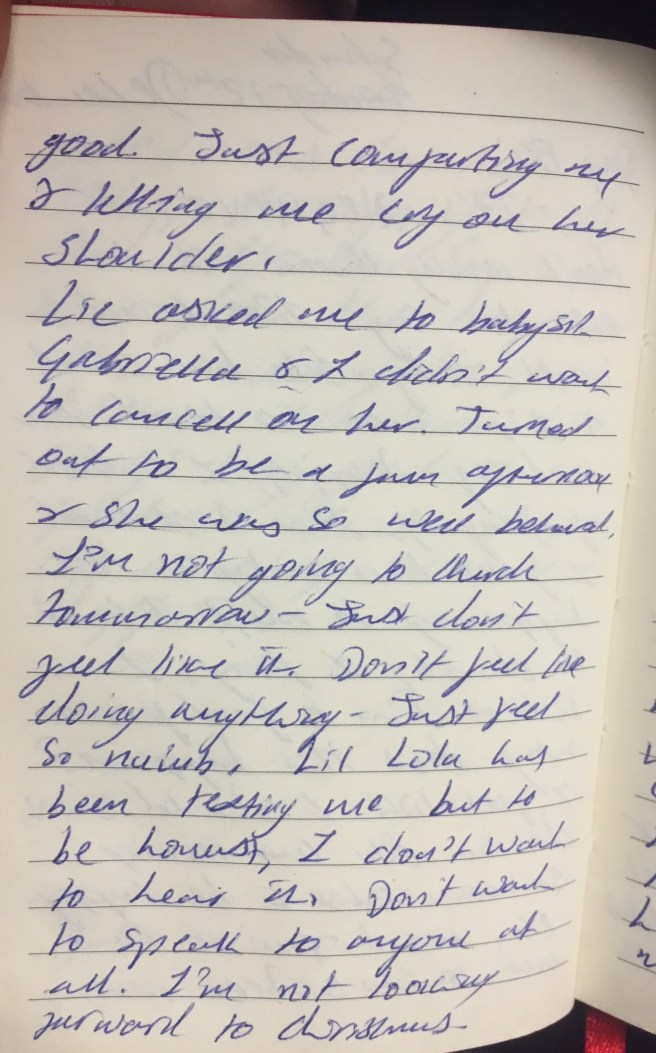 good. Just comforting me
& letting me cry on her
shoulder.
Liz asked me to babysit
Gabriella & I didn't want
to cancell on her. Turned
out to be a fun afternoon
& she was so well behaved.
I'm not going to church
tommorrow - Just don't
feel like it. Don't feel like
doing anything - Just feel
so numb. Lil Lola has
been texting me but to
be honest, I don't want
to hear it. Don't want
to speak to anyone at
all. I'm not looking
forward to christmas.